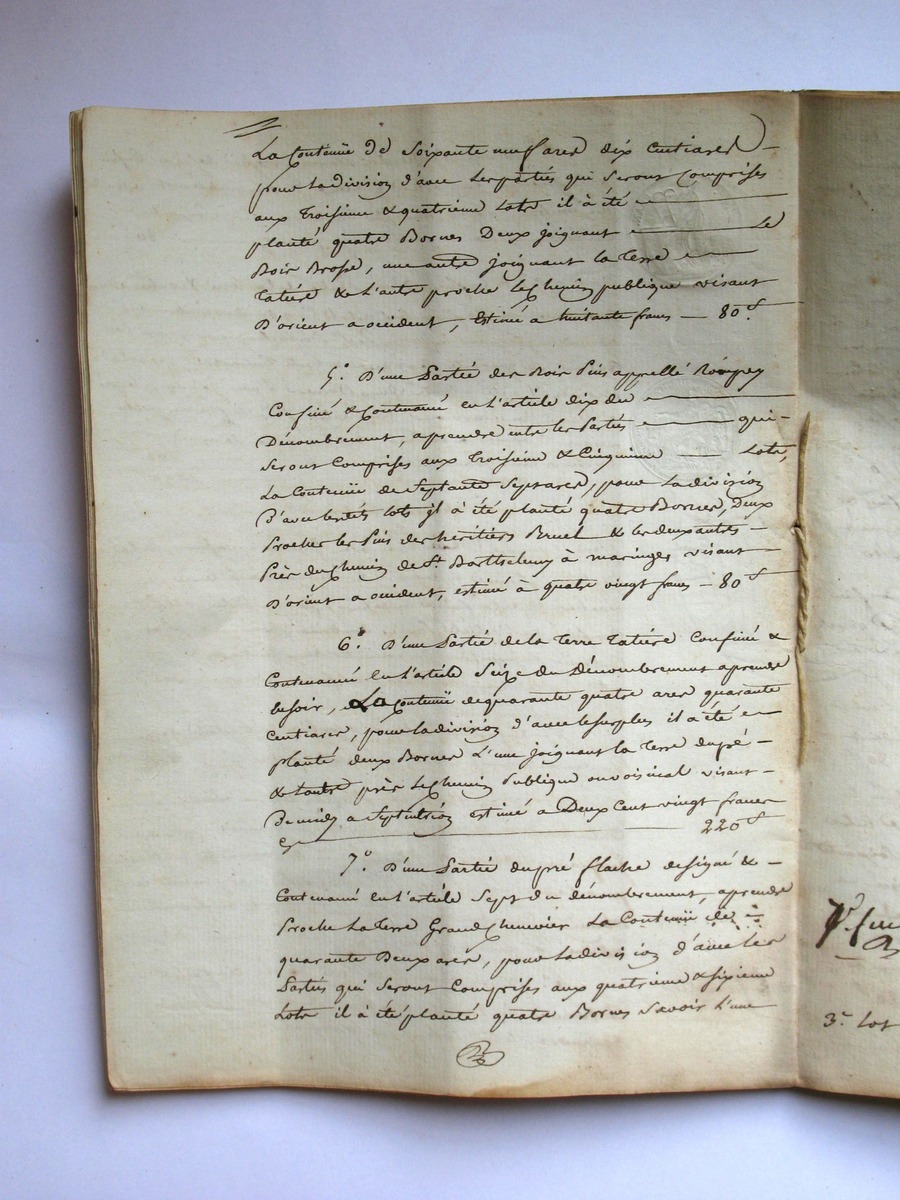 La Contenüe de Soixante neuf ares dix Centiares —
pour la division d'avec les parties qui seront Comprises
aux troisieme & quatrieme Lots il à été
planté quatre Bornes Deux joignant Le
Bois Brosse, une autre joignant la terre
ratiére & L'autre proche Le Chemin publique visant
D'orient a occident, Estimé a huitante francs — 80 f.
5° D'une Partié des Bois Pins appellé
Confiné & Contenancé en L'article dix du
Dénombrement, a prendre entre les Partiés qui-
seront Comprises aux Troisieme & Cinquieme Lots,
La Contenüe de Septante Sept ares, pour La division
D'avec les dits lots il à été planté quatre Bornes, Deux
Proches les Pins des heritiers Bruel & les deux autres —
Près du Chemin de St. Barthelemy à maringes visant
D'orient a occident, estimé à quatre vingt francs — 80 f
6° D'une Partié de la terre ratiére Confiné &
Contenancé en L'article Seize du Dénombrement a prendre
de soir, La Contenüe de quarante quatre ares quarante
Centiares, pour la division d'avec le surplus il a été
planté deux Bornes L'une joignant la terre du pré —
& L'autre près Le Chemin Publique ou voisinal visant —
De midy a Septentrion estimé a Deux Cent vingt francs
220 f
7° D'une Partié du pré flache designé & —
Contenancé en L'article Sept du dénombrement, a prendre
Proche La terre Grand Chenevier La Contenüe de
quarante Deux ares, pour la division d'avec les
Partiés qui Seront Comprises aux quatrieme & sixieme
Lots il à été planté quatre Bornes Savoir L'une
3e Lot